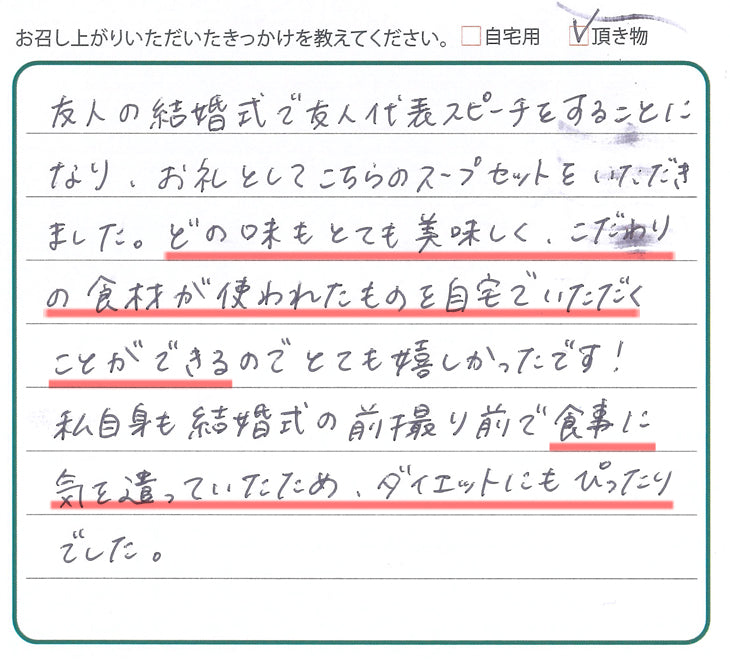 お召し上がりいただいたきっかけを教えてください。 □自宅用 ☑頂き物
友人の結婚式で友人代表スピーチをすることに
なり、お礼としてこちらのスープセットをいただき
ました。どの味もとても美味しく、こだわり
の食材が使われたものを自宅でいただく
ことができるのでとても嬉しかったです!
私自身も結婚式の前撮り前で食事に
気を遣っていたため、ダイエットにもぴったり
でした。